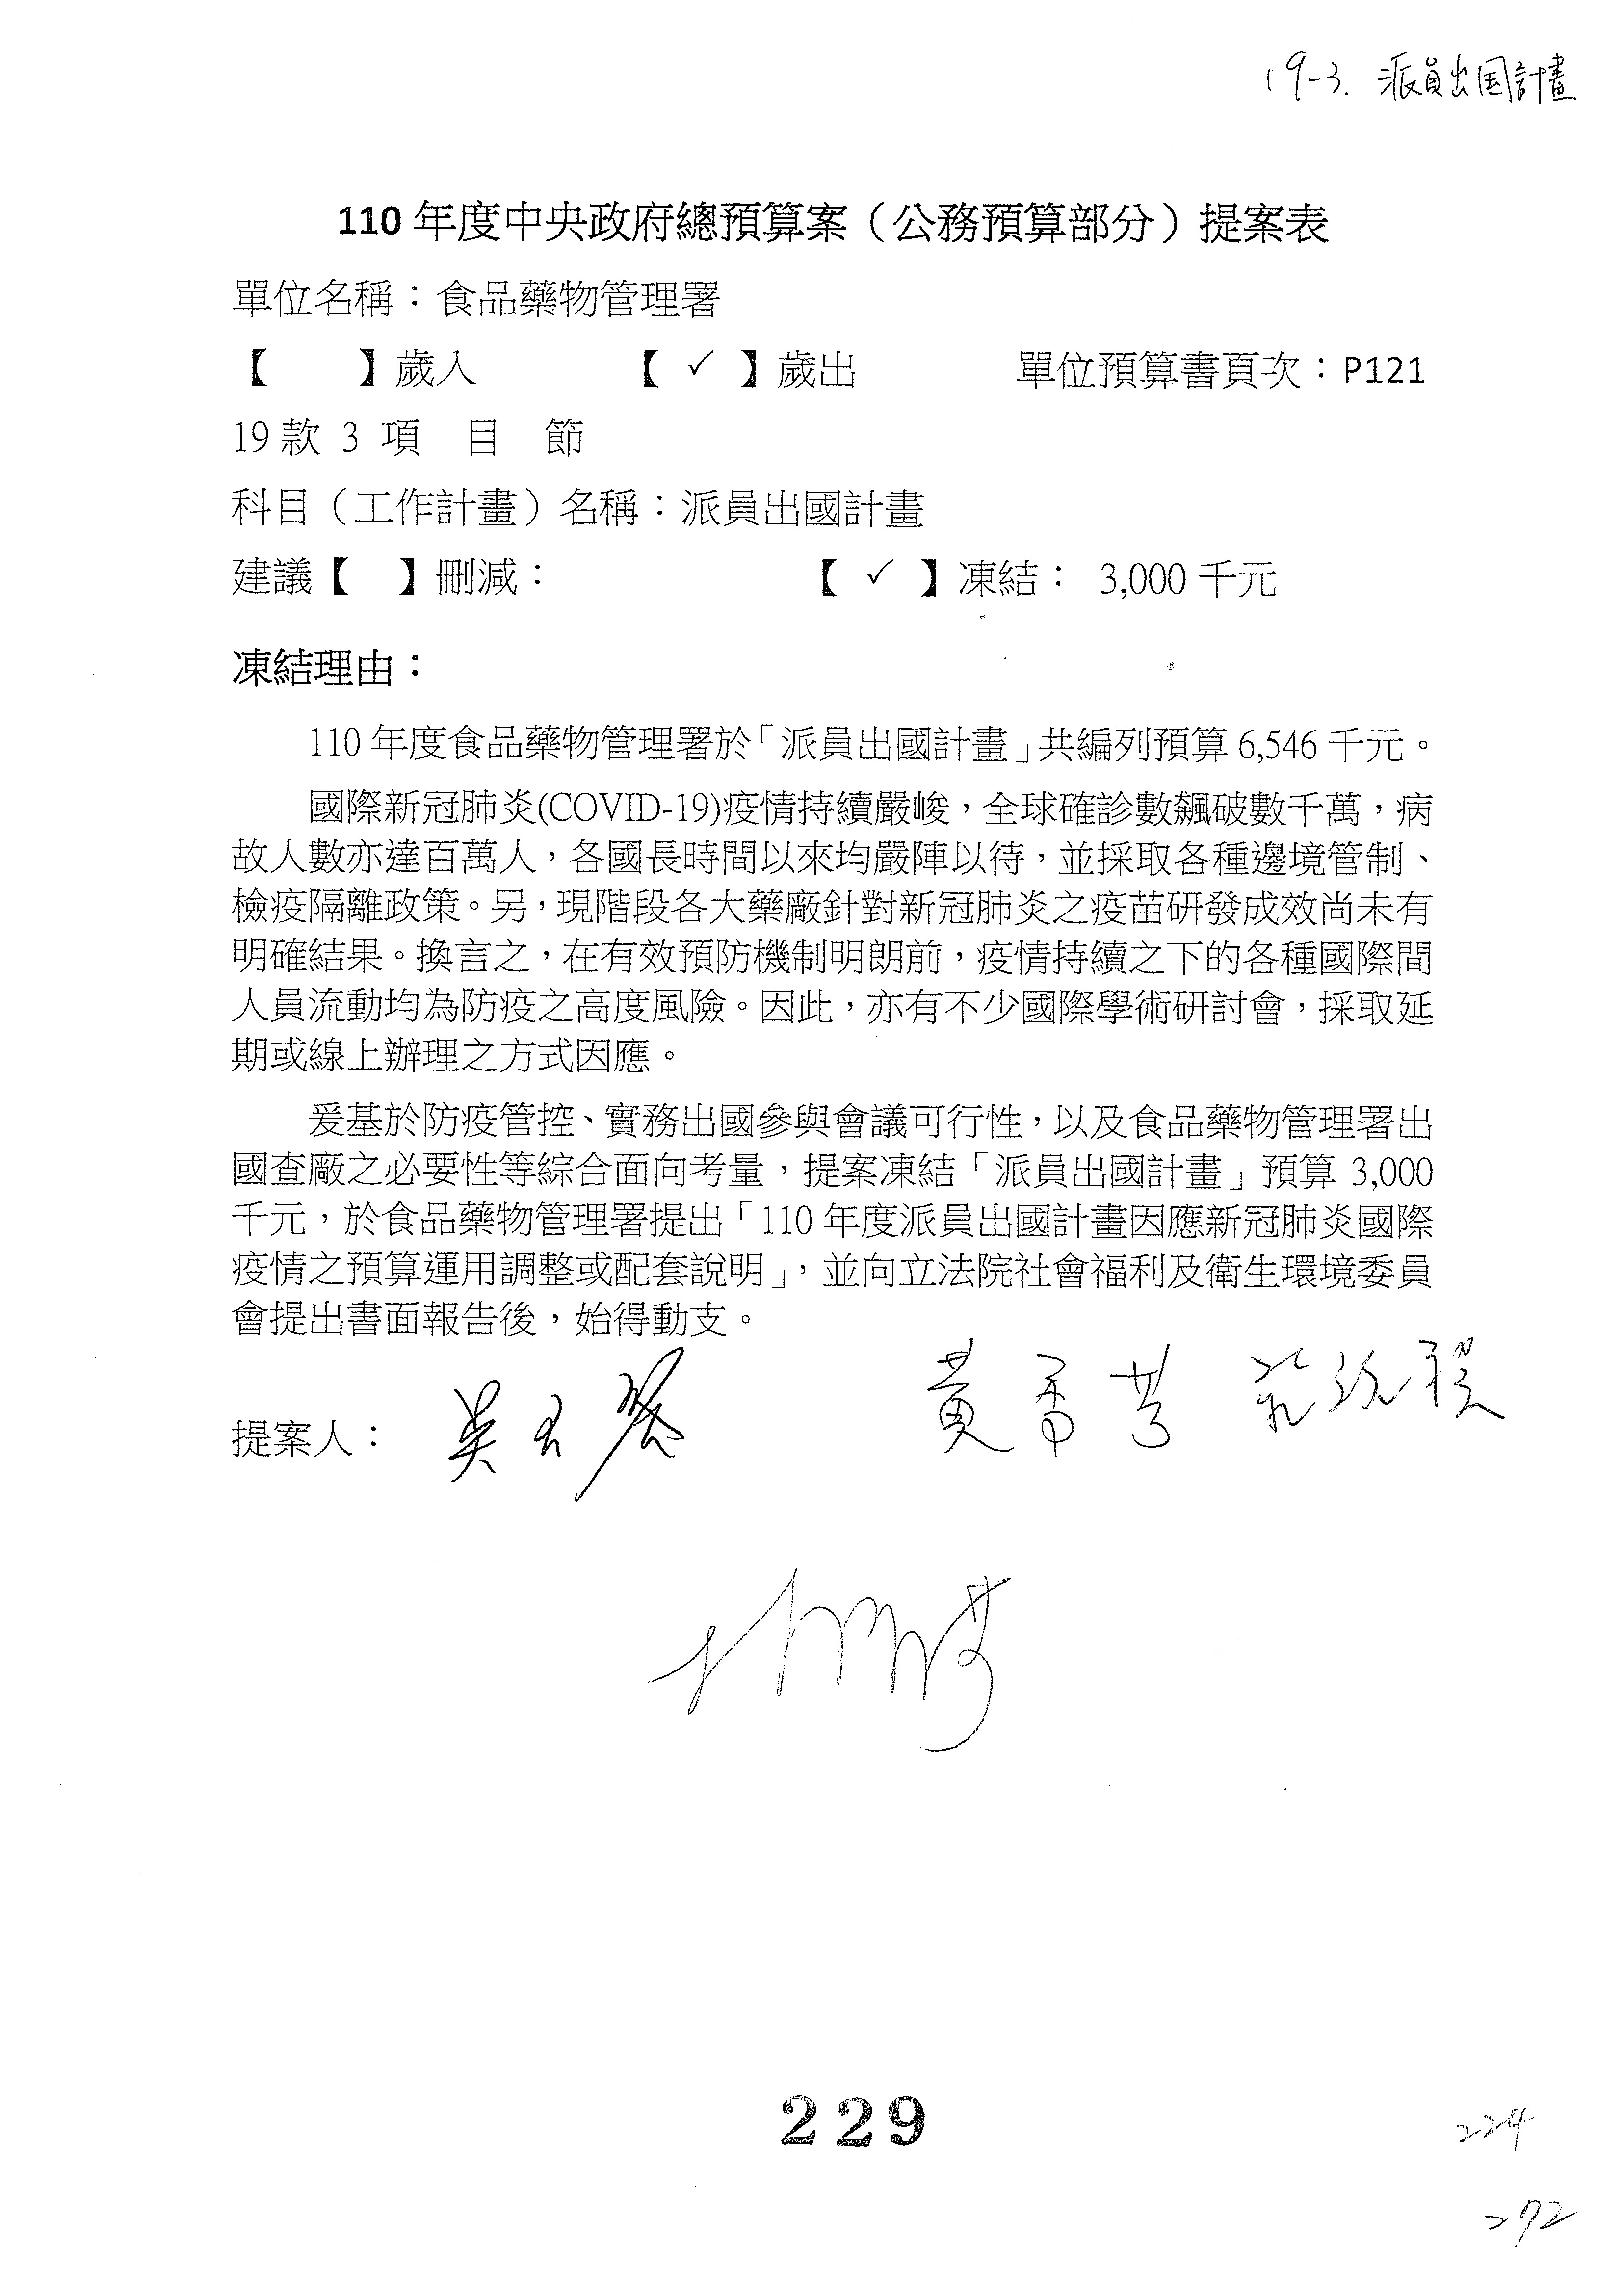 19-3. 派員出国計畫
110 年度中央政府總預算案（公務預算部分）提案表
單位名稱：食品藥物管理署
【　　】歲入　　　　【 ✓ 】歲出　　　　單位預算書頁次：P121
19 款 3 項　目　節
科目（工作計畫）名稱：派員出國計畫
建議【　】刪減：　　　　　　　【 ✓ 】凍結： 3,000 千元
凍結理由：
110 年度食品藥物管理署於「派員出國計畫」共編列預算 6,546 千元。
國際新冠肺炎(COVID-19)疫情持續嚴峻，全球確診數飆破數千萬，病
故人數亦達百萬人，各國長時間以來均嚴陣以待，並採取各種邊境管制、
檢疫隔離政策。另，現階段各大藥廠針對新冠肺炎之疫苗研發成效尚未有
明確結果。換言之，在有效預防機制明朗前，疫情持續之下的各種國際間
人員流動均為防疫之高度風險。因此，亦有不少國際學術研討會，採取延
期或線上辦理之方式因應。
爰基於防疫管控、實務出國參與會議可行性，以及食品藥物管理署出
國查廠之必要性等綜合面向考量，提案凍結「派員出國計畫」預算 3,000
千元，於食品藥物管理署提出「110 年度派員出國計畫因應新冠肺炎國際
疫情之預算運用調整或配套說明」，並向立法院社會福利及衛生環境委員
會提出書面報告後，始得動支。
提案人：
229
224
272